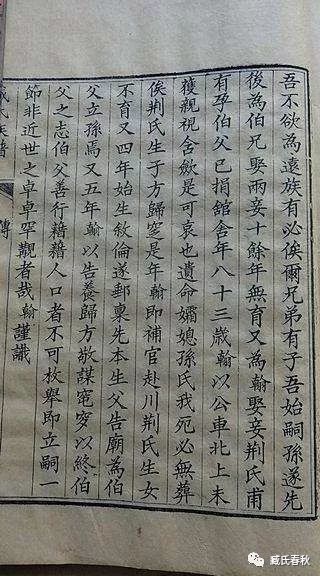 吾不欲為遠族有必俟爾兄弟有子吾始嗣孫遂先
後為伯兄娶兩妾十餘年無育又為翰娶妾荆氏甫
有孕伯父已捐舘舍年八十三歲翰以公車北上未
獲親視含斂是可哀也遺命孀媳孫氏我死必無葬
俟荆氏生子方歸窆是年翰即補官赴川荆氏生女
不育又四年始生敘倫遂郵稟先本生父告廟為伯
父立孫焉又五年翰以告養歸方敬謀窀穸以終伯
父之志伯父善行籍籍人口者不可枚舉即立嗣一
節非近世之卓卓罕覯者哉翰謹識
臧氏族譜
傳
臧氏春秋